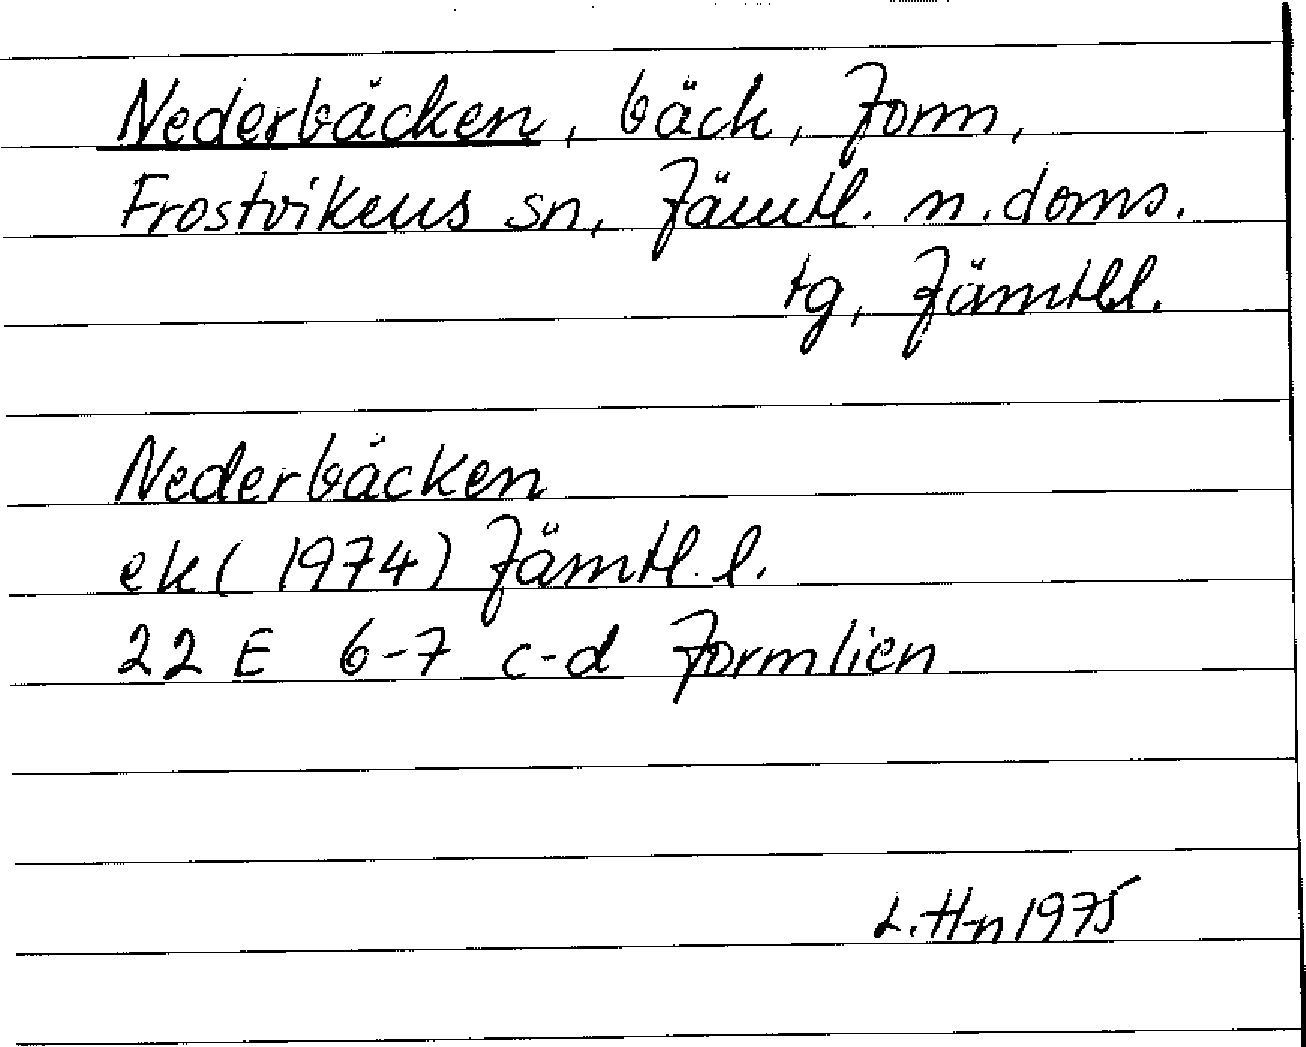 Nederbäcken, bäck, Jorm,
Frostvikens sn, Jämtl. n. doms.
tg, Jämtl l.
Nederbäcken
ek (1974) Jämtl. l.
22 E 6-7 c-d Jormlien
L. H-n 1975